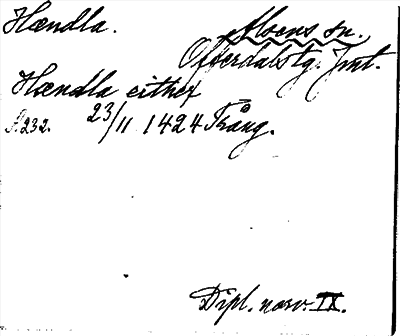 Hændla.
Alsens sn.
Offerdals tg. Jmt.
Hændla either
S. 232. 23/11 1424 Trång.
Dipl. norv. IX.